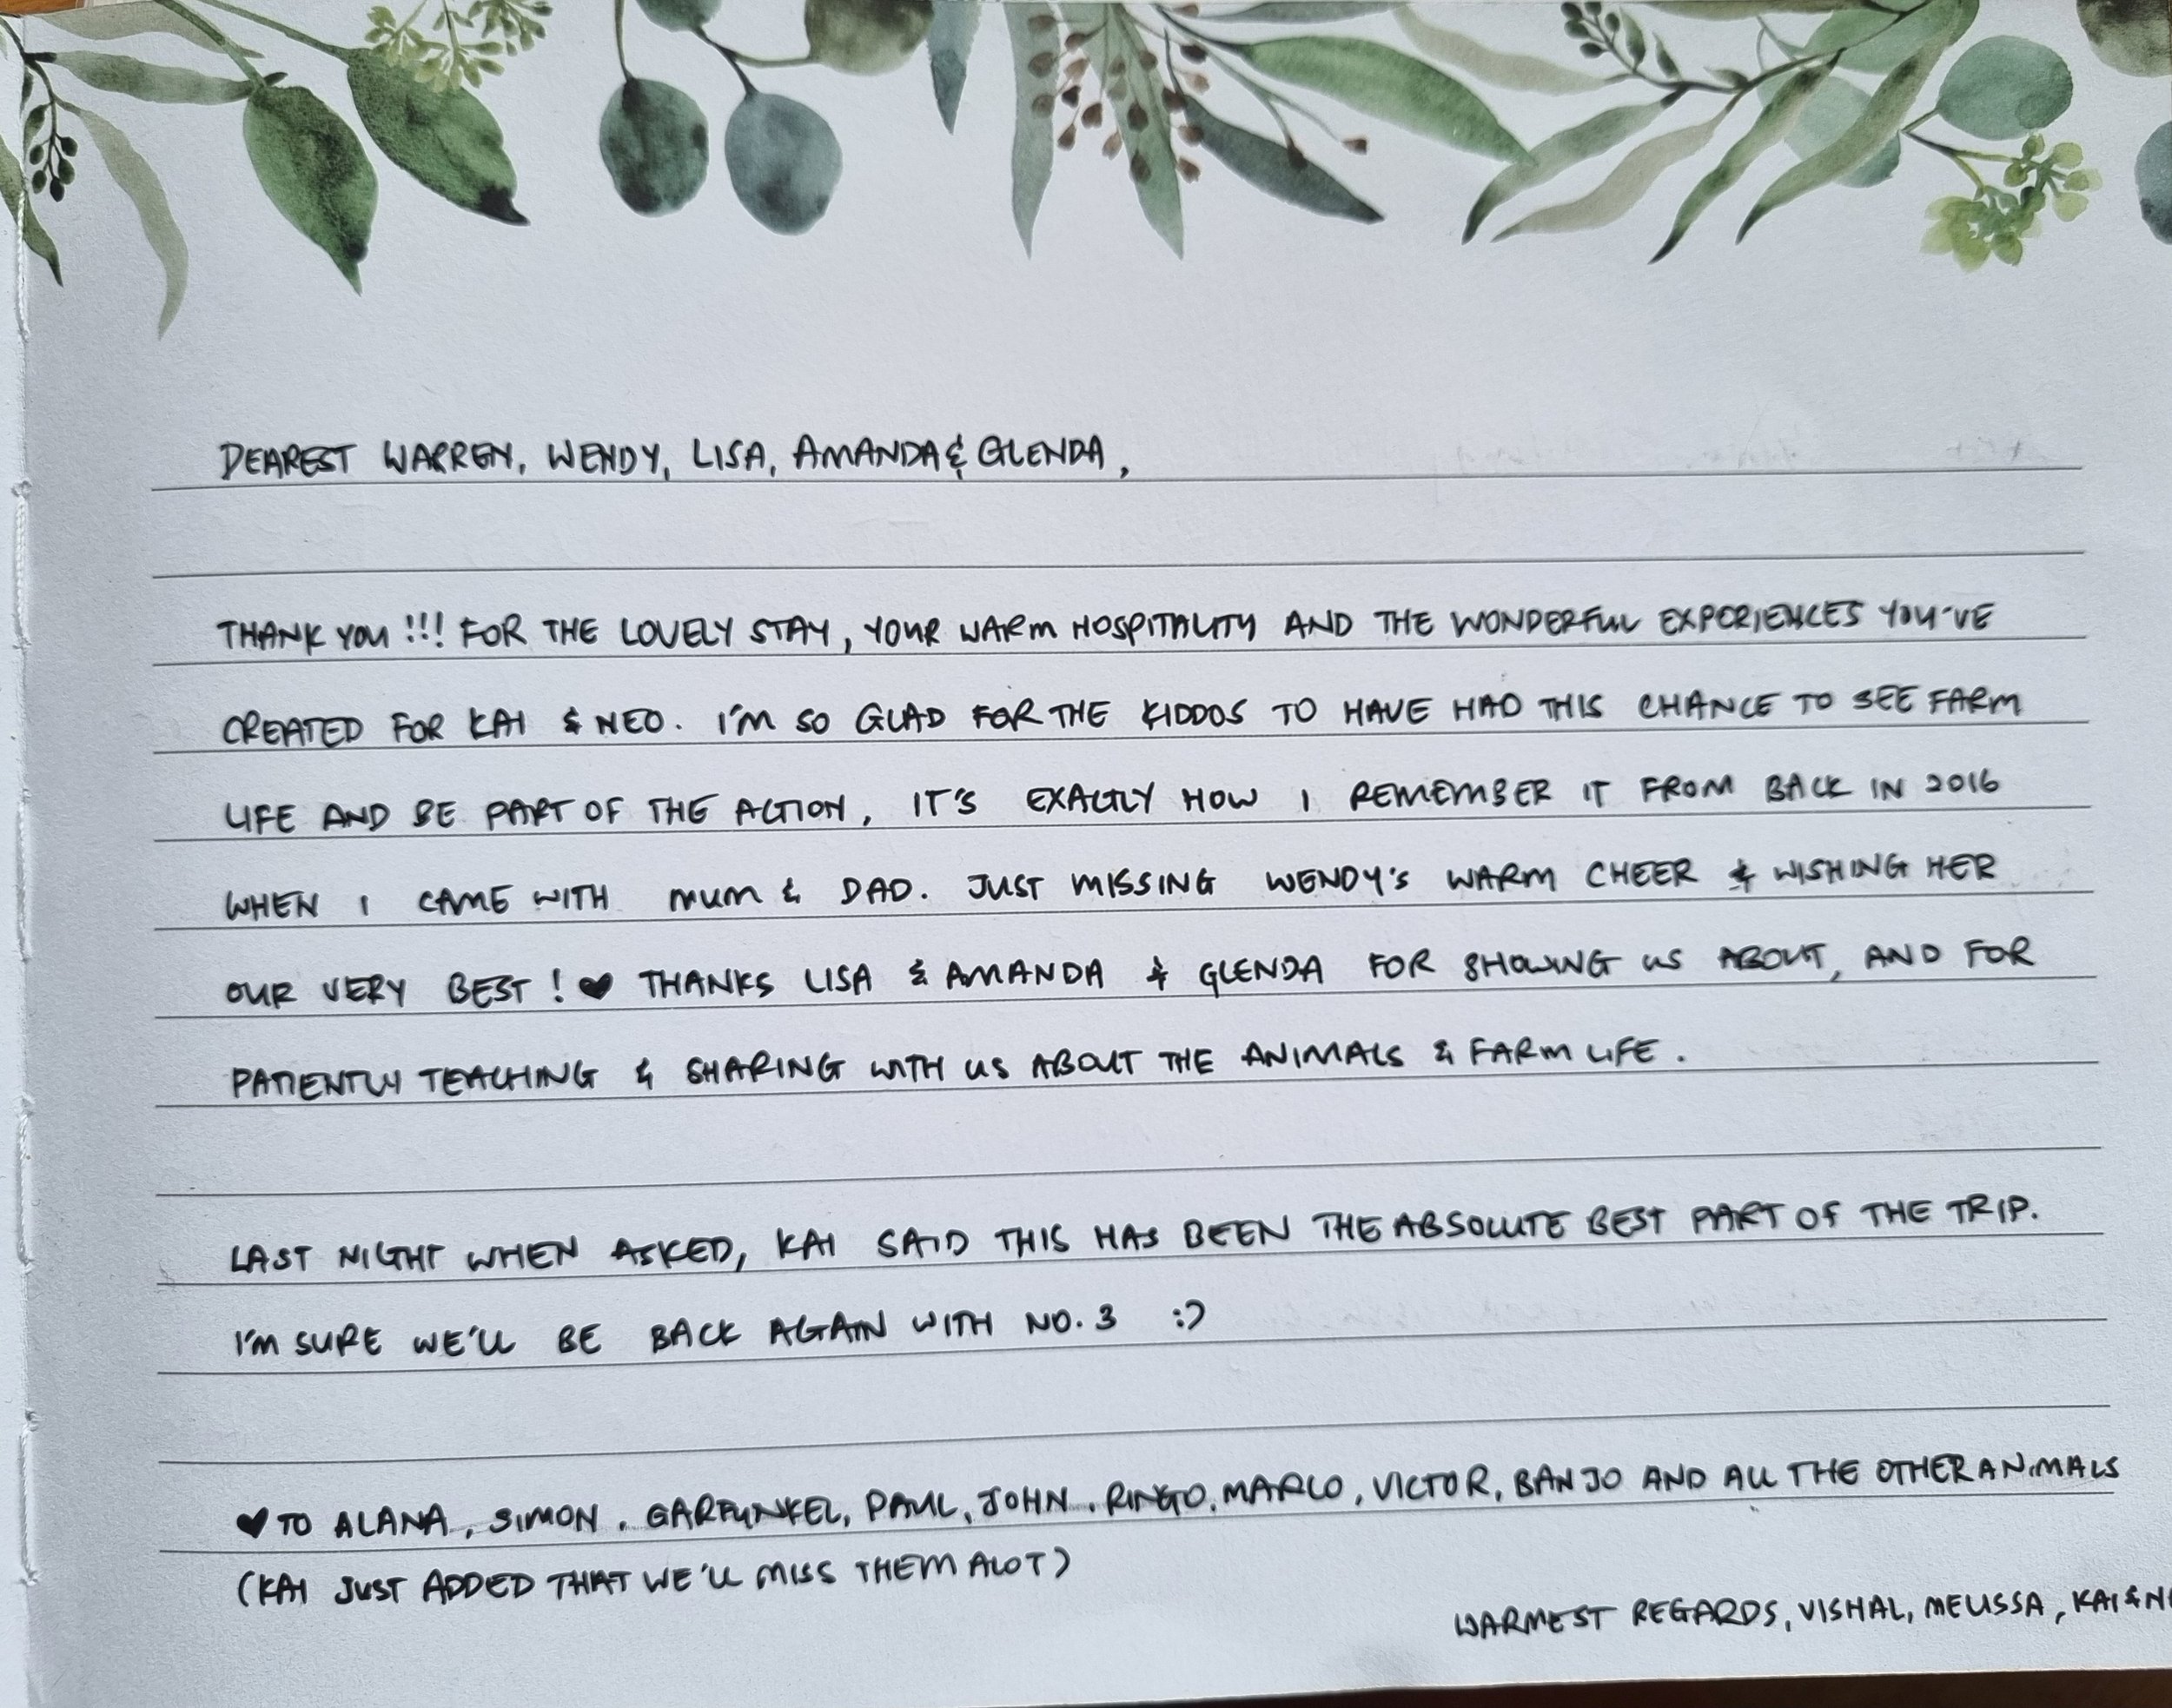 DEAREST WARREN, WENDY, LISA, AMANDA & GLENDA,
THANK YOU !!! FOR THE LOVELY STAY, YOUR WARM HOSPITALITY AND THE WONDERFUL EXPERIENCES YOU'VE
CREATED FOR KAI & NEO. I'M SO GLAD FOR THE KIDDOS TO HAVE HAD THIS CHANCE TO SEE FARM
LIFE AND BE PART OF THE ACTION, IT'S EXACTLY HOW I REMEMBER IT FROM BACK IN 2016
WHEN I CAME WITH MUM & DAD. JUST MISSING WENDY'S WARM CHEER & WISHING HER
OUR VERY BEST ! ♥ THANKS LISA & AMANDA & GLENDA FOR SHOWING US ABOUT, AND FOR
PATIENTLY TEACHING & SHARING WITH US ABOUT THE ANIMALS & FARM LIFE.
LAST NIGHT WHEN ASKED, KAI SAID THIS HAS BEEN THE ABSOLUTE BEST PART OF THE TRIP.
I'M SURE WE'LL BE BACK AGAIN WITH NO. 3 :)
♥ TO ALANA, SIMON, GARFUNKEL, PAUL, JOHN, RINGO, MARLO, VICTOR, BANJO AND ALL THE OTHER ANIMALS
(KAI JUST ADDED THAT WE'LL MISS THEM ALOT)
WARMEST REGARDS, VISHAL, MELISSA, KAI &